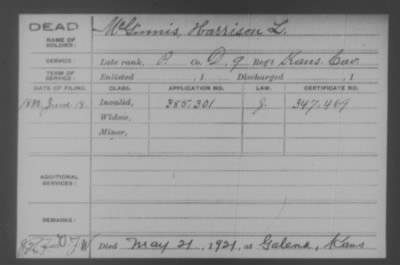 DEAD
NAME OF SOLDIER: McGinnis, Harrison L.
SERVICE: Late rank, P. Co. D, 9 Reg't Kans. Cav.
TERM OF SERVICE: Enlisted , 1 Discharged , 1
DATE OF FILING. CLASS. APPLICATION NO. LAW. CERTIFICATE NO.
1880, June 18. Invalid, 385,301 G. 347,469
Widow,
Minor,
ADDITIONAL SERVICES:
REMARKS:
Died May 21, 1921, at Galena, Kans